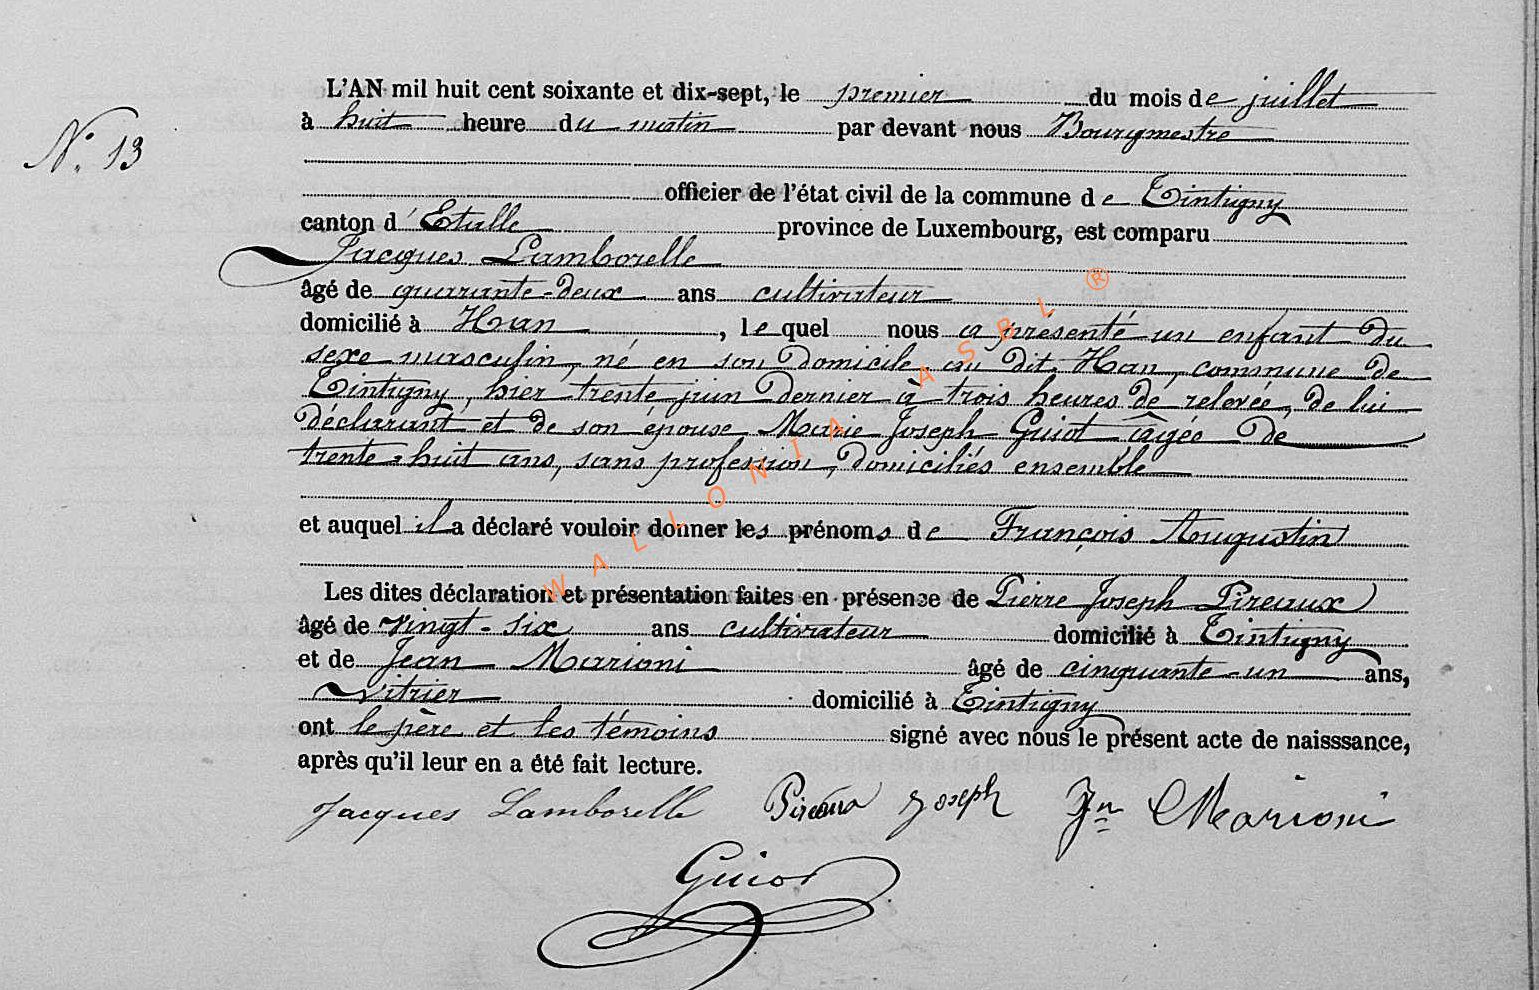 L'AN mil huit cent soixante et dix-sept, le premier du mois de juillet
N.° 13
à huit heure du matin par devant nous Bourgmestre
officier de l'état civil de la commune de Tintigny
canton d'Etalle province de Luxembourg, est comparu
Jacques Lamborelle
âgé de quarante-deux ans cultivateur
domicilié à Han, lequel nous a présenté un enfant du
sexe masculin, né en son domicile au dit Han, commune de
Tintigny, hier trente juin dernier à trois heures de relevée, de lui
déclarant et de son épouse Marie Joseph Guiot âgée de
trente-huit ans, sans profession, domiciliés ensemble
et auquel il a déclaré vouloir donner les prénoms de François Augustin
Les dites déclaration et présentation faites en présence de Pierre Joseph Pireaux
âgé de vingt-six ans cultivateur domicilié à Tintigny
et de Jean Marioni âgé de cinquante-un ans,
vitrier domicilié à Tintigny
ont le père et les témoins signé avec nous le présent acte de naisssance,
après qu'il leur en a été fait lecture.
Jacques Lamborelle Joseph Jn Marioni
Guiot
WALLONIA ASBL ®